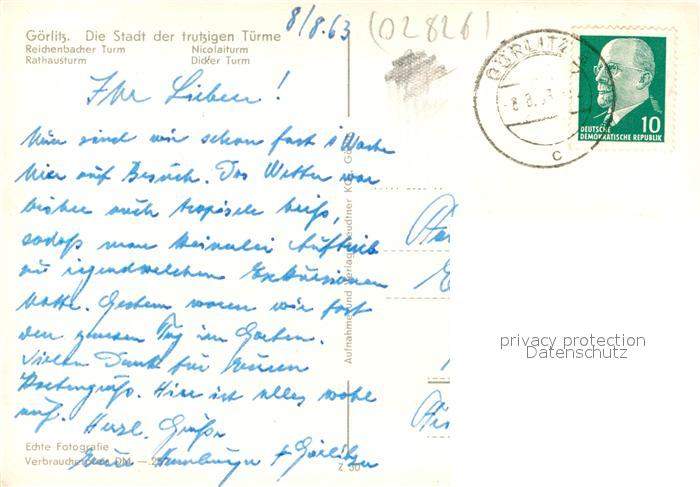 8/8.63 (02826)
Görlitz. Die Stadt der trutzigen Türme
Reichenbacher Turm Nicolaiturm
Rathausturm Dicker Turm
Ihr Lieben!
Nun sind wir schon fast 1 Woche
hier auf Besuch. Das Wetter war
bisher auch tropisch heiß,
sodaß man keinerlei Auftrieb
zu irgendwelchen Exkursionen
hatte. Gestern waren wir fast
den ganzen Tag im Garten.
Vielen Dank für Euren
Kartengruß. Hier ist alles wohl
auf. Herzl. Grüße
Eure Hamburger + Görlitzer
Echte Fotografie
Verbraucherpreis DM
Z 50
Aufnahme und Verlag
GÖRLITZ
8.8.63
c
DEUTSCHE
DEMOKRATISCHE REPUBLIK
10
privacy protection
Datenschutz